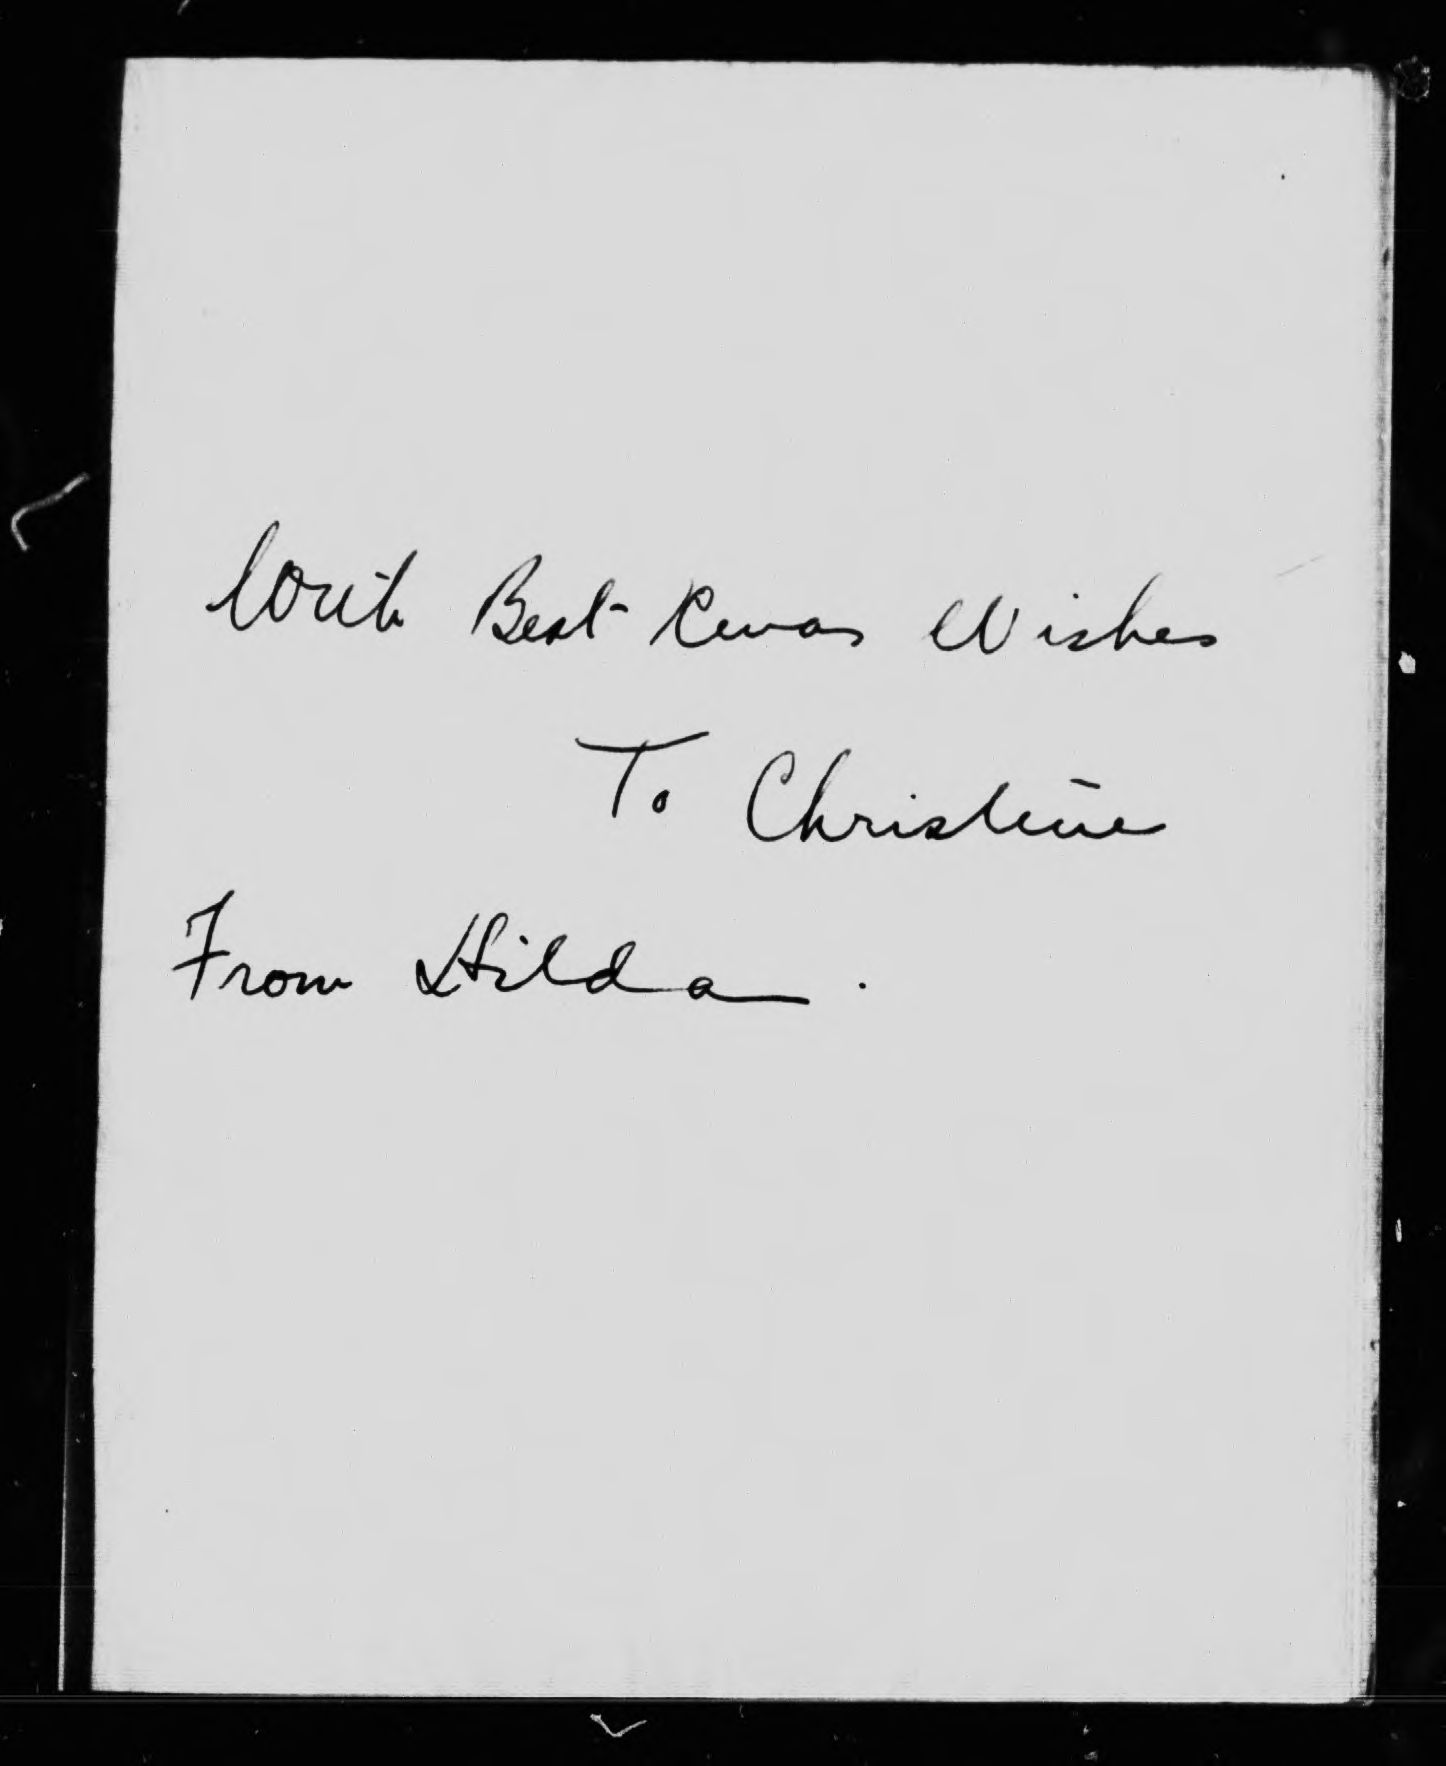 With Best Xmas Wishes
To Christine
From Hilda.